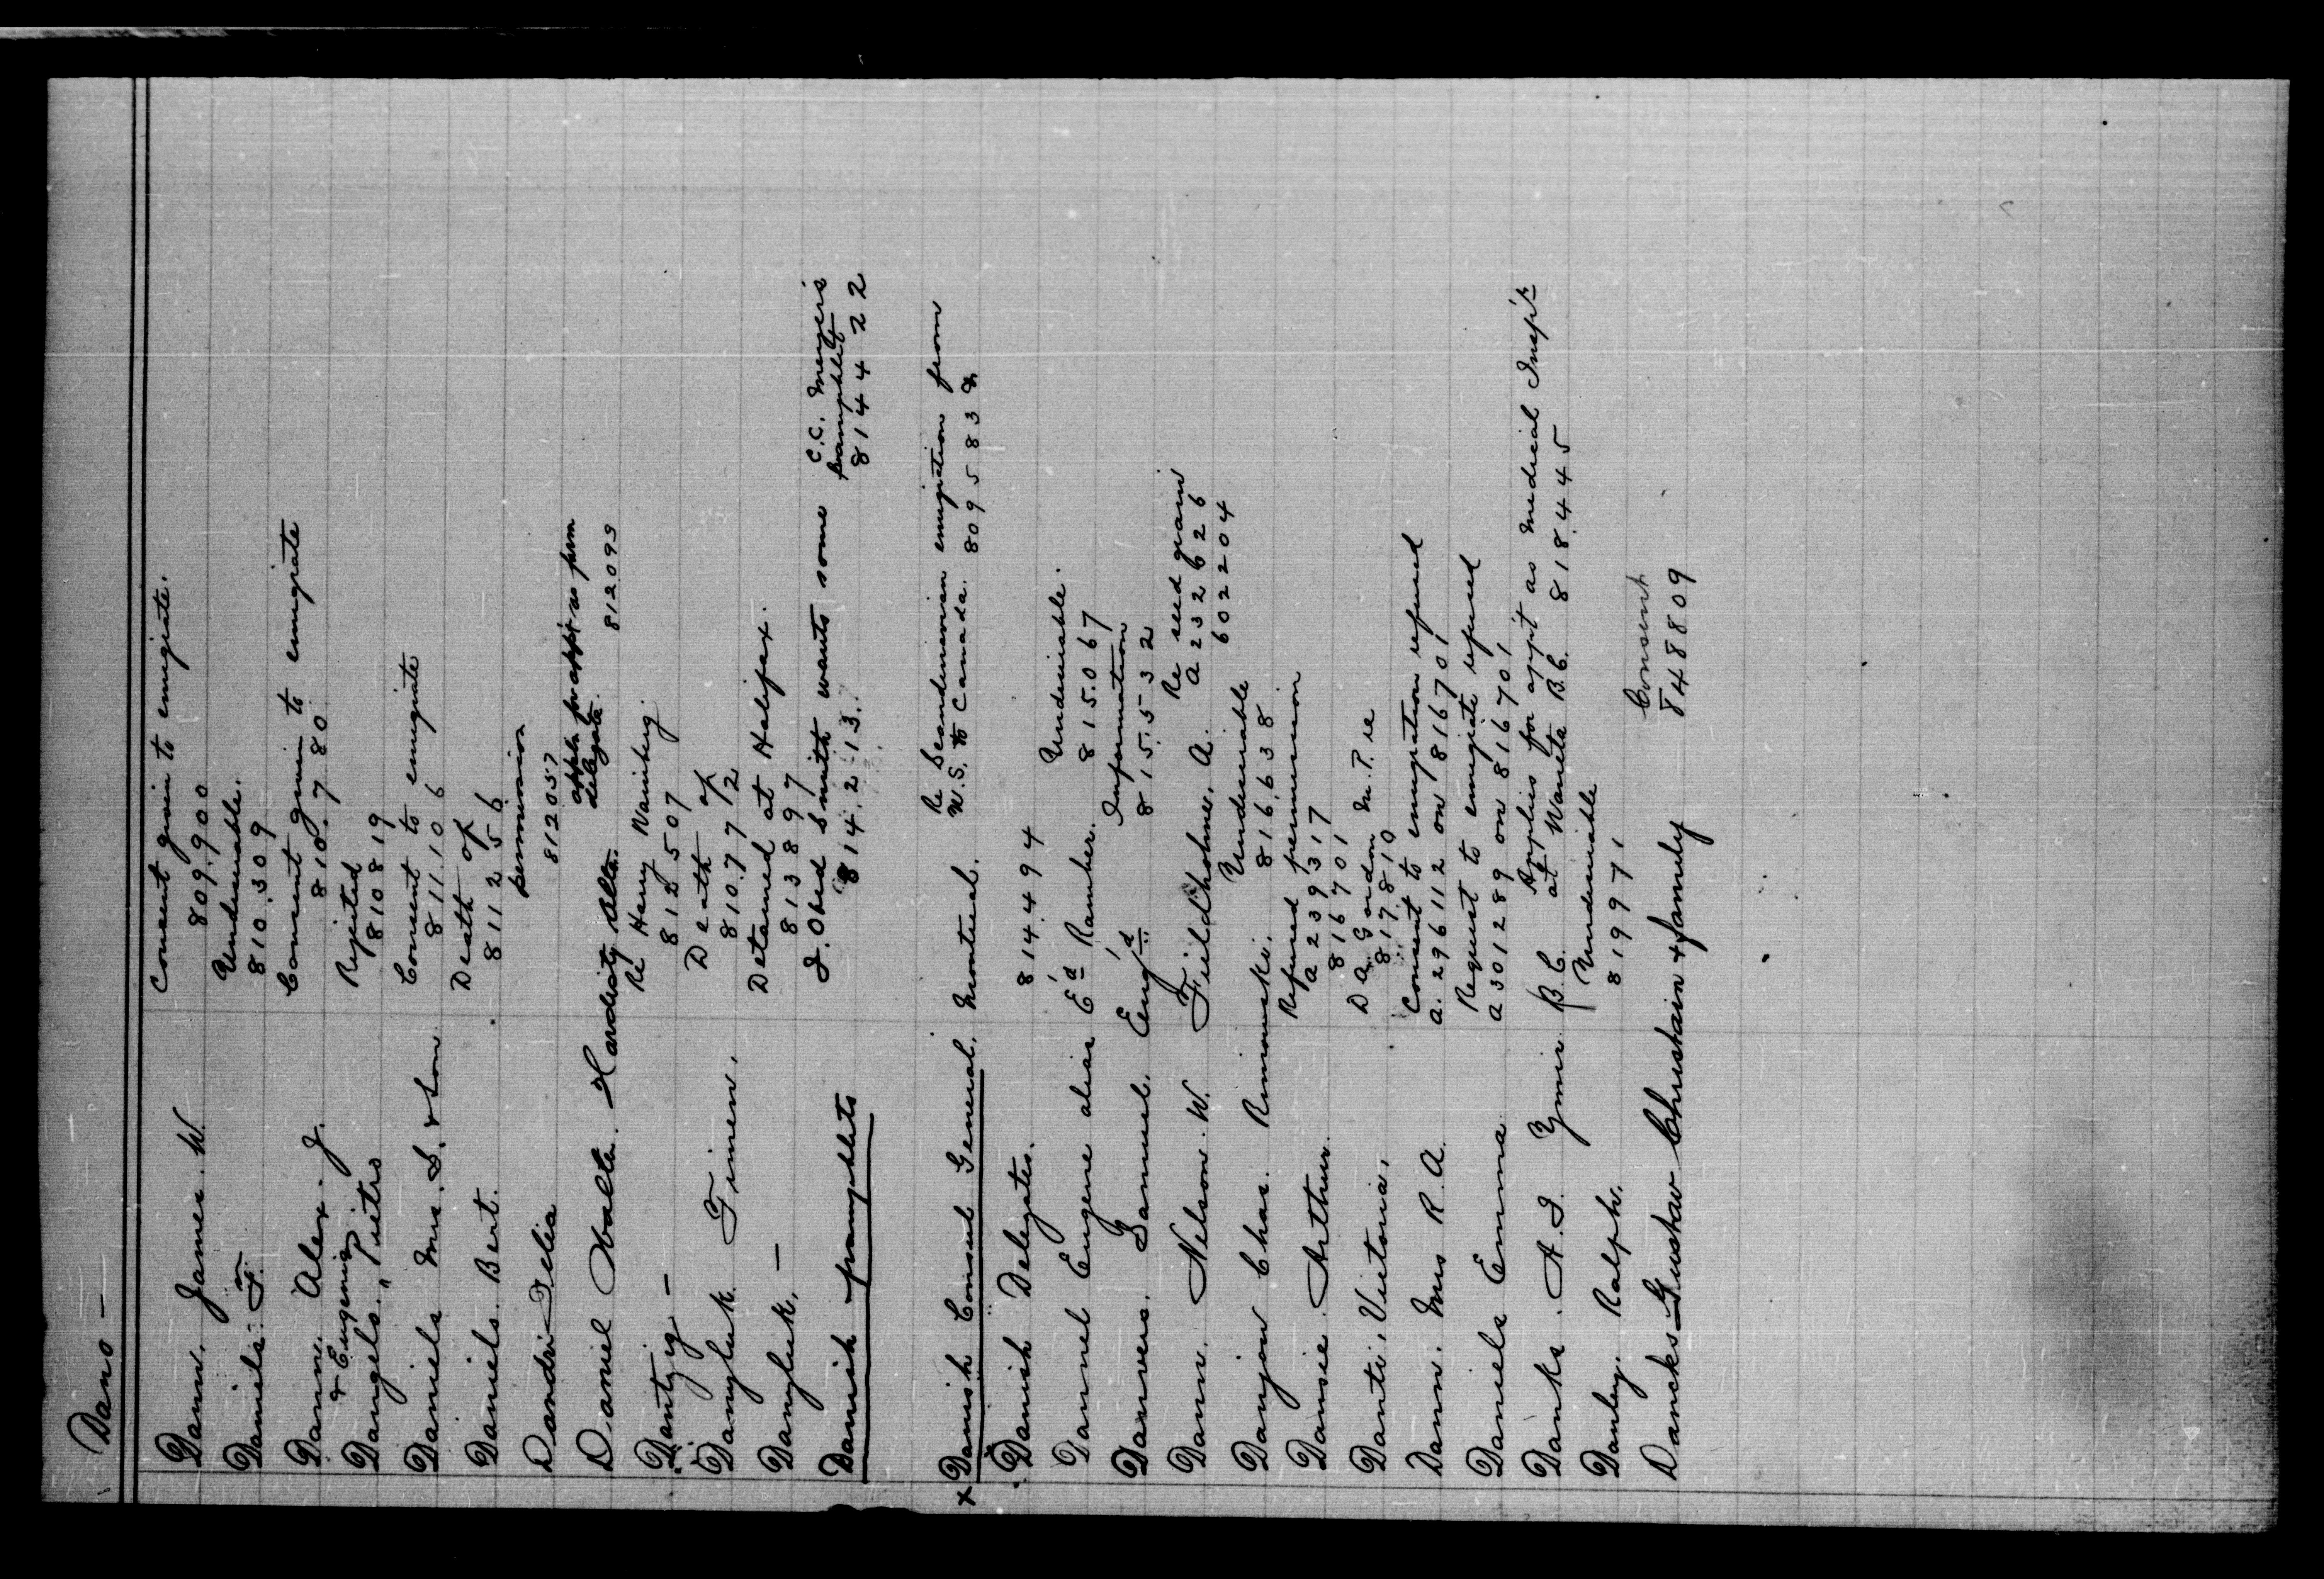 Dano —
Dann. James. W. Consent given to emigrate.
809.900
Daniels. F. Undesirable.
810.309
Danne. Alex. J. Consent given to emigrate
& Eugenia 810.780
Dangelo., Pietro Rejected
810819
Daniels Mrs. S. & Son Consent to emigrate
811.106
Daniels. Bert. Death of
811256
Dandri Delia permission
812057
Daniel Walter Hardisty Alta. appln for appt as farm
delegate. 812093
Dantzig — Re Henry Wainberg
812507
Danyluk Timen. Death of
810.772
Danyluk, — Detained at Halifax.
813897
Danish pamphlets J. Obed Smith wants some C.C. Menzies
pamphlets
814.213. 8144422
x Danish Consul General. Montreal. Re Scandinavian emigration from
U.S. to Canada. 809583
Danish Delegates. 814494
Dannel Eugene alias Ed Ramber. Undesirable.
815.067
Danvers. Samuel. Eng'd Information
815.532
Dann. Nelson. W. Fieldholme, A. Re seed grain
A 232626
602204
Danjou Chas. Rimouski. Undesirable
816.638
Dansie. Arthur. Refused permission
A 239317
816701
Danti, Victoria. D A Gordon M.P. re
817810
Dann. Mrs R. A. Consent to emigration refused
A. 296112 on 816701
Daniels Emma Request to emigrate refused
A 301289 on 816701
Danks. A. I. Ymir B.C. Applies for app't as Medical Insp'r
at Waneta B.C. 818445
Danley. Ralph. Undesirable
819971
Dancks Gustav Christain & family Consent
848809